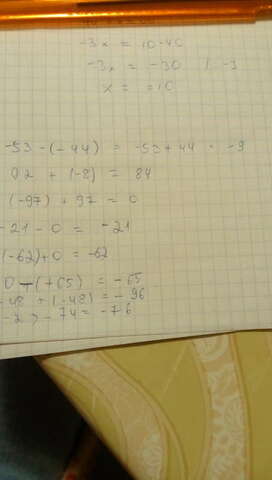 -3x = 10-40
-3x = -30 | -3
x = =10
-53 -(-44) = -53+44 = -9
92 + (-8) = 84
(-97) + 97 = 0
-21 - 0 = -21
(-62)+0 = -62
0 -(+65) = -65
-48 + (-48) = -96
-2 - 74 = -76